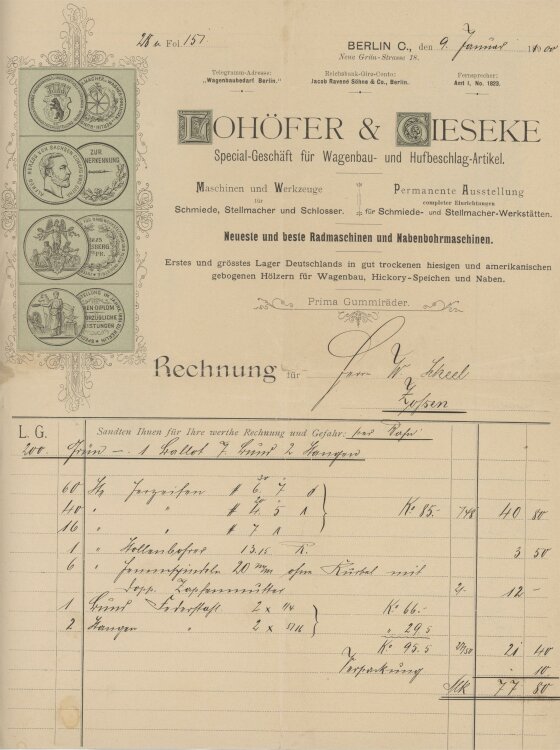 28 u. Fol. 151
BERLIN C., den 9. Januar 1900
Neue Grün-Strasse 18.
Telegramm-Adresse: Reichsbank-Giro-Conto: Fernsprecher:
„Wagenbaubedarf Berlin.“ Jacob Ravené Söhne & Co., Berlin. Amt I, No. 1829.
LOHÖFER & GIESEKE
Special-Geschäft für Wagenbau- und Hufbeschlag-Artikel.
Maschinen und Werkzeuge
für
Schmiede, Stellmacher und Schlosser.
Permanente Ausstellung
completer Einrichtungen
für Schmiede- und Stellmacher-Werkstätten.
Neueste und beste Radmaschinen und Nabenbohrmaschinen.
Erstes und grösstes Lager Deutschlands in gut trockenen hiesigen und amerikanischen
gebogenen Hölzern für Wagenbau, Hickory-Speichen und Naben.
Prima Gummiräder.
ZUR
ANERKENNUNG
Rechnung für Herrn W. Scheel
Zossen
L. G. Sandten Ihnen für Ihre werthe Rechnung und Gefahr: per Bahn
200 Grün — 1 Ballot 7 Bund 2 Stangen
60
40 K° 85.- 7/48 40 80
16 " " # 7
1 " 13.15 R. 3 50
6 20 m/m ohne Kurbel mit
dopp. Zapfenmutter 2/- 12 -
1 Bund Federstahl 2 x 1/4 K° 66.-
2 Stangen " 2 x 5/16 " 29.5
K° 95.5 21 40
Verpackung 10
Mk 77 80